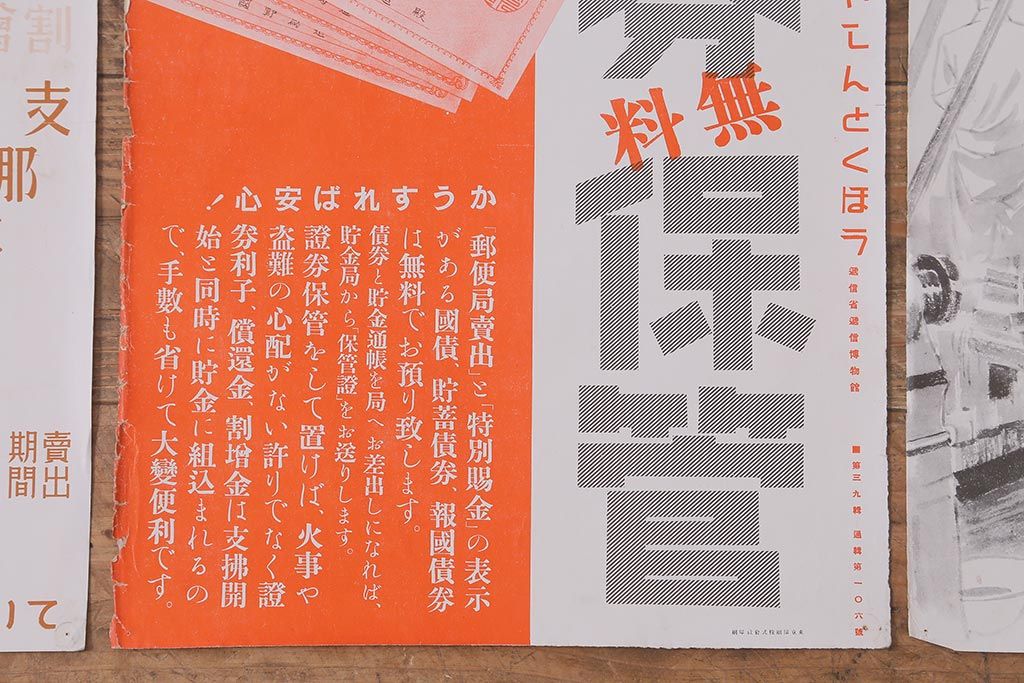 やこんとくほラ
遞信省遞信博物館
第三九輯 通輯第一〇六號
券
無料
保管
かうすれば安心！
「郵便局賣出」と「特別賜金」の表示
がある國債、貯蓄債券、報國債券
は無料でお預り致します。
債券と貯金通帳を局へお差出しになれば、
貯金局から「保管證」をお送りします。
證券保管をして置けば、火事や
盗難の心配がない許りでなく證
券利子、償還金、割増金は支拂開
始と同時に貯金に組込まれるの
で、手數も省けて大變便利です。
殿
支
那
賣出
期間
割